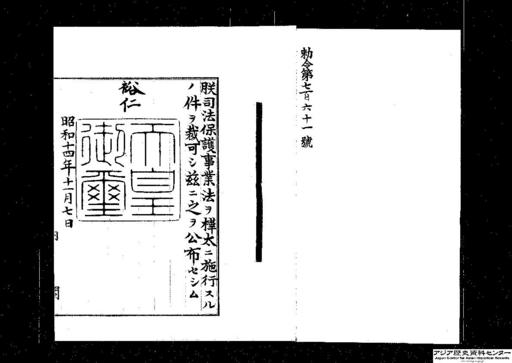 勅令第七百六十一號
朕司法保護事業法ヲ樺太ニ施行スル
ノ件ヲ裁可シ茲ニ之ヲ公布セシム
裕仁
天皇
御璽
昭和十四年十一月七日
アジア歴史資料センター
Japan Center for Asian Historical Records